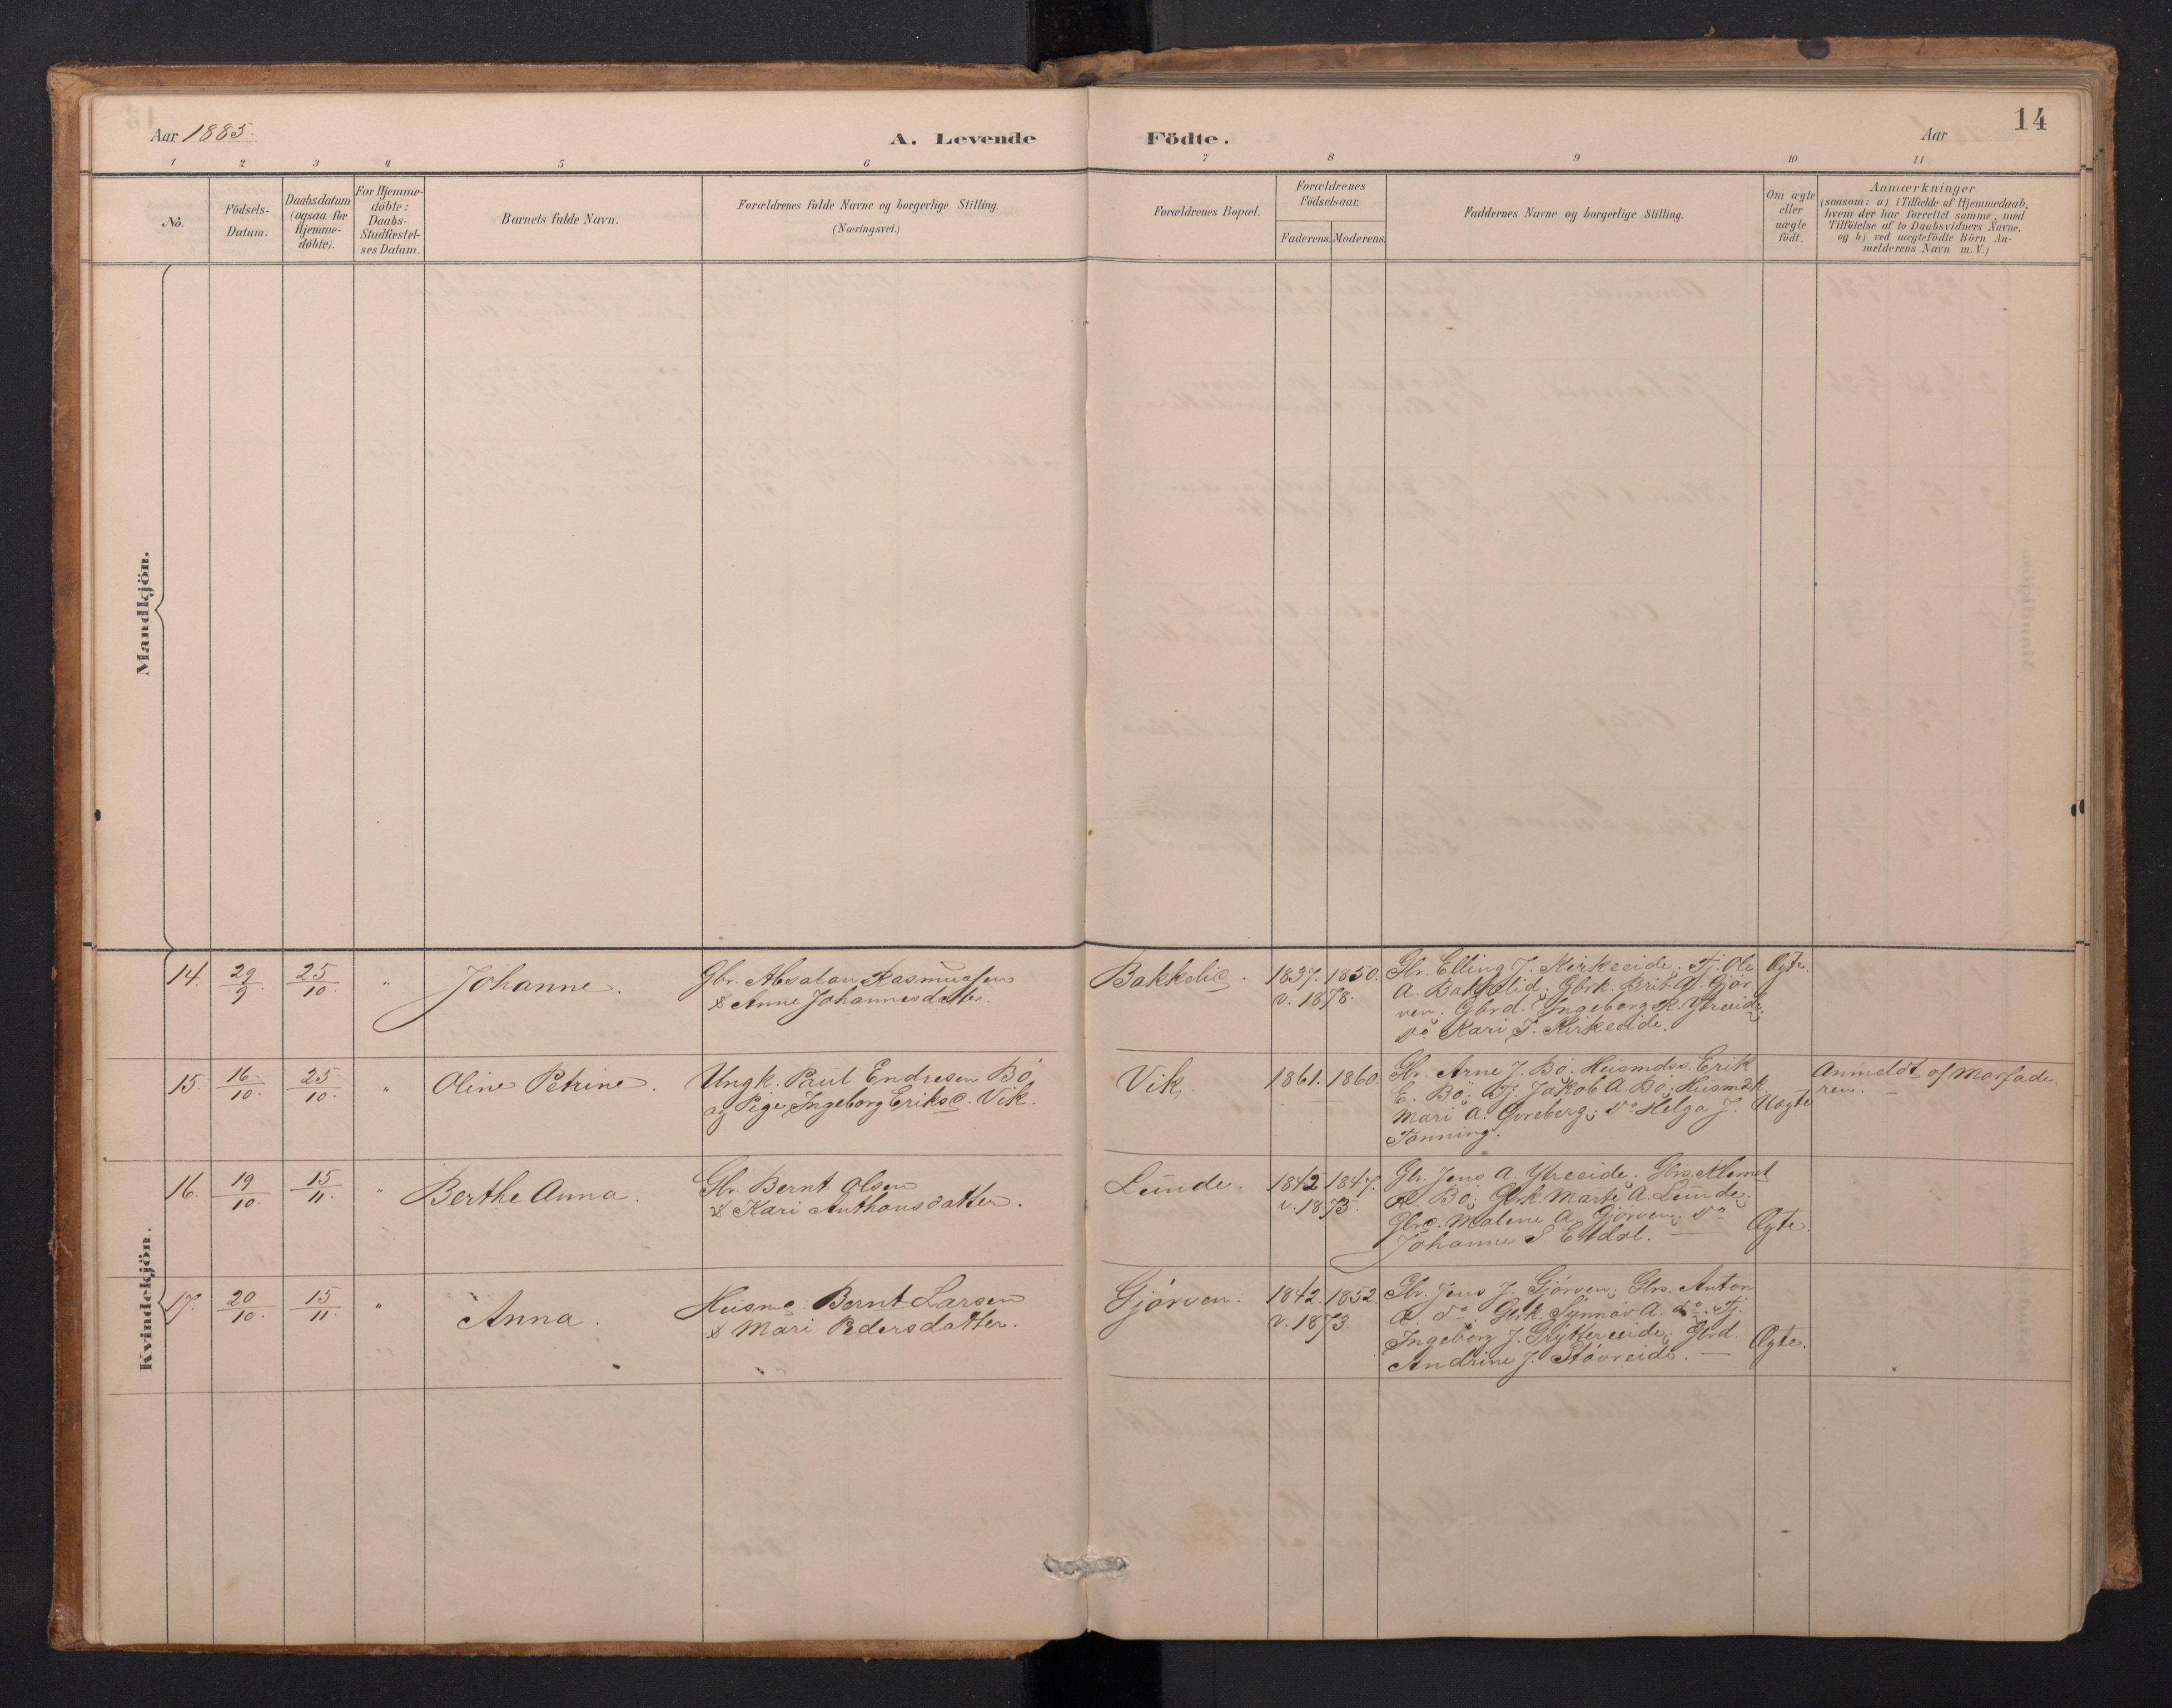 Aar 1885.
A. Levende
Födte.
Aar
14
1 2 3 4 5 6 7 8 9 10 11
No.
Födsels-
Datum.
Daabsdatum
(ogsaa for
Hjemme-
döbte).
For Hjemme-
döbte:
Daabs-
Stadfæstel-
ses Datum.
Barnets fulde Navn.
Forældrenes fulde Navne og borgerlige Stilling.
(Næringsvei.)
Forældrenes Bopæl.
Forældrenes
Födselsaar.
Faderens. Moderens.
Faddernes Navne og borgerlige Stilling.
Om ægte
eller
uægte
födt.
Anmærkninger
(saasom: a) i Tilfælde af Hjemmedaab,
hvem der har forrettet samme, med
Tilföielse af to Daabsvidners Navne,
og b) ved uægtefödte Börn An-
melderens Navn m. V.)
Mandkjön.
Kvindekjön.
14. 29/9. 25/10. " Johanne.
Gbr. Absalon Rasmussen
& Anne Johannesdatter.
Bakkelid.
1837. 1850.
v. 1878.
Gbr. Elling J. Kirkeeide; Tj. Ole
A. Bakkelid; Gbrk. Brit A. Gjör-
ven; Gbrd. Ingeborg R. Ytreeide;
do Kari T. Kirkeeide.
Ægte.
15. 16/10. 25/10. " Oline Petrine.
Ungk. Paul Endresen Bö
og Pige Ingeborg Eriksd. Vik.
Vik.
1861. 1860.
Gbr. Arne J. Bö; Husmdss. Erik
E. Bö; Tj. Jakob A. Bö; Husmdk
Mari A. Övreberg; do Helga J.
Tonning.
Uægte
Anmeldt af Morfade-
ren.
16. 19/10. 15/11. " Berthe Anna.
Gbr. Bernt Olsen
& Kari Anthonsdatter.
Lunde.
1842 1847.
v. 1873.
Gbr. Jens A. Ytreeide; Gbrs. Klemet
R. Bö; Gbrk. Marte A. Lunde;
Gbrd. Malene A. Gjörven; do
Johanne S. Eldal.
Ægte.
17. 20/10. 15/11. " Anna.
Husmd. Bernt Larsen
& Mari Pedersdatter.
Gjörven.
1842. 1852.
v. 1873.
Gbr. Jens J. Gjörven; Gbrs. Anton
A. do; Gbrk. Synnöv A. do; Tj.
Ingeborg J. Gryttereeide; Gbrd.
Andrine J. Störeeide.
Ægte.